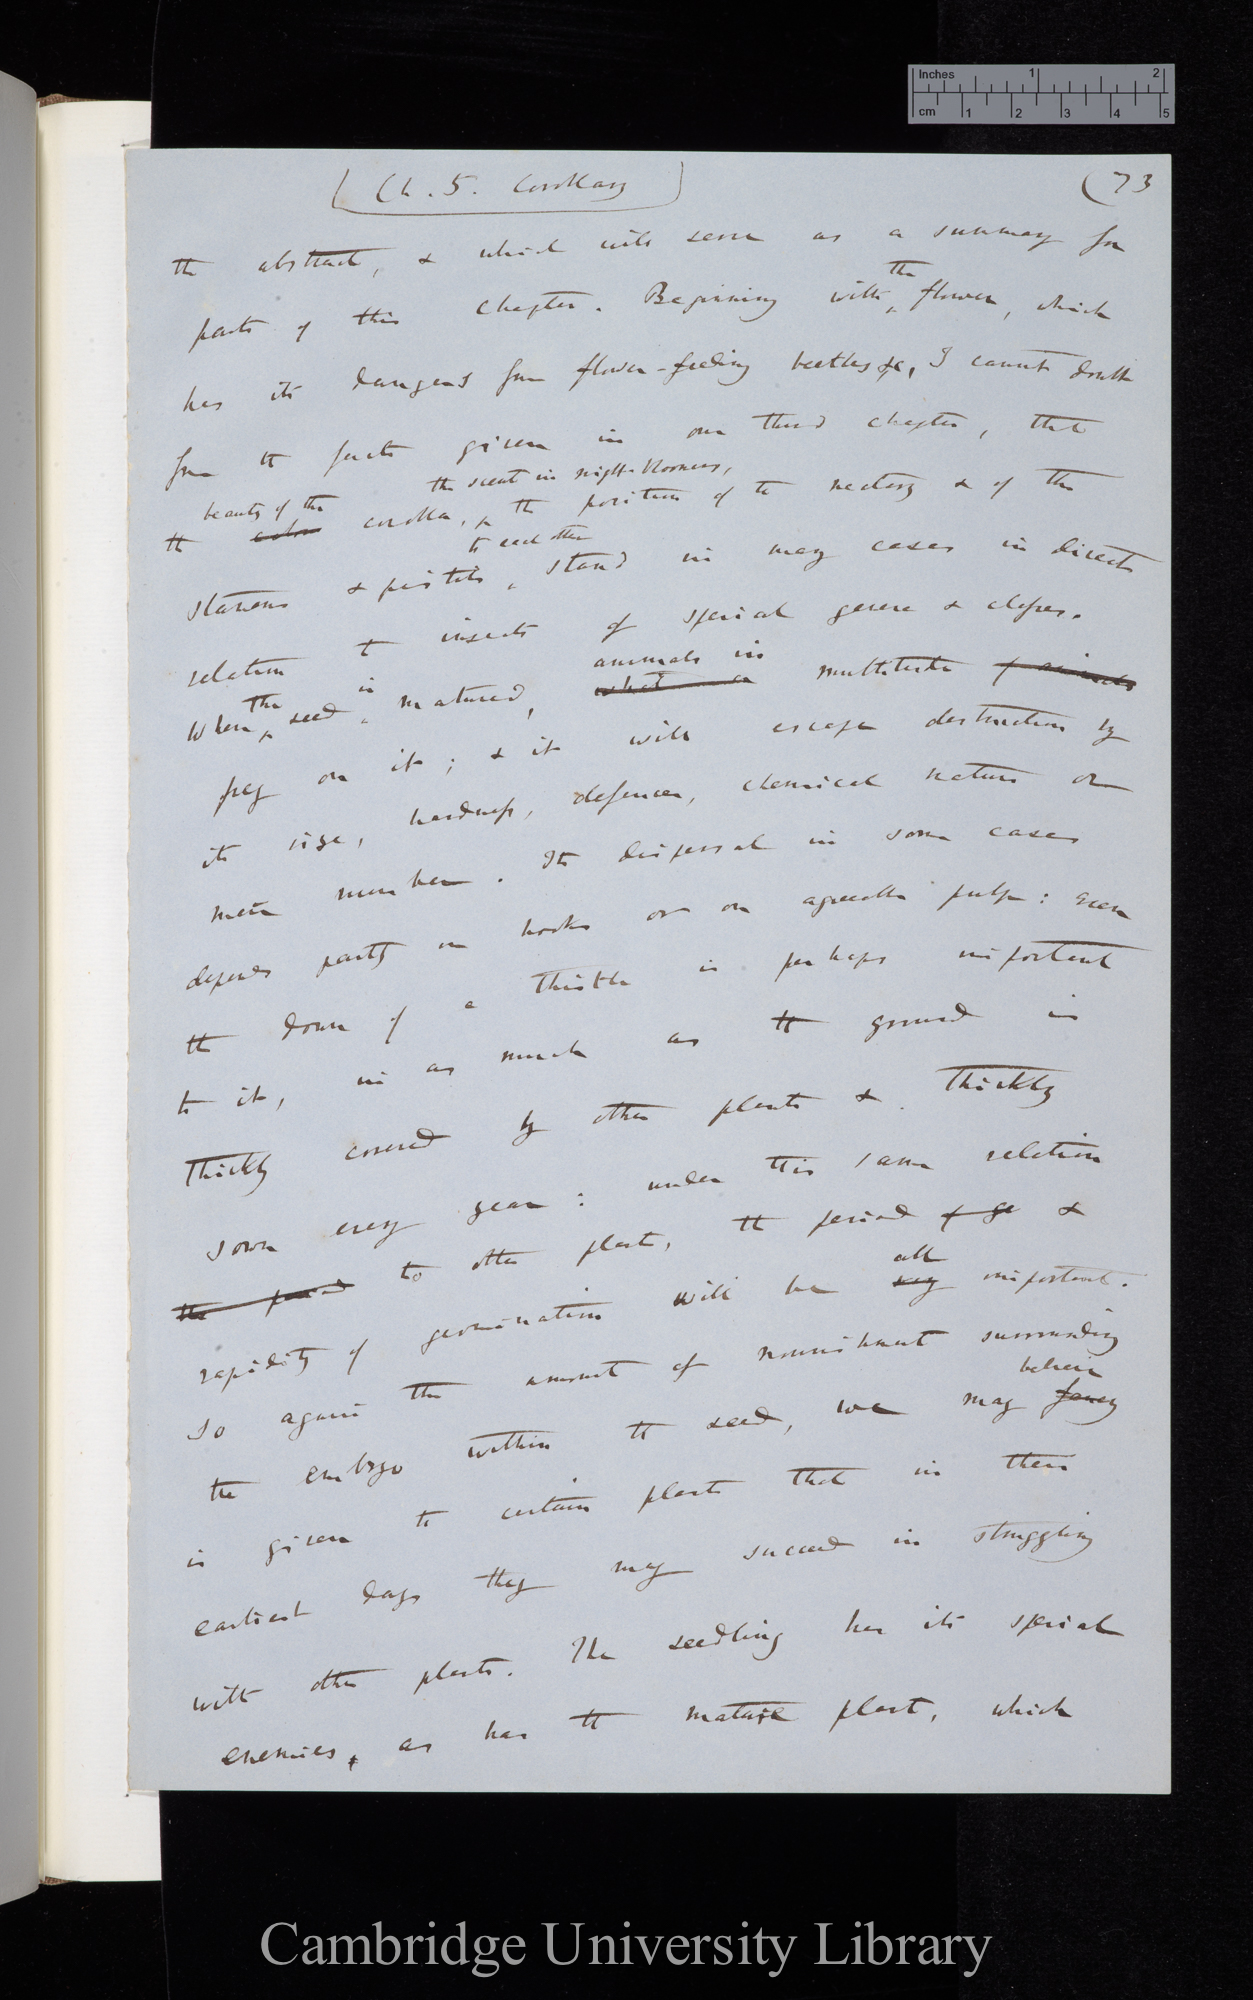 Inches 1 2
cm 1 2 3 4 5
(Ch. 5. Corollary) (73
the abstract, & which will serve as a summary for
parts of this chapter. Beginning with the flower, which
has its dangers from flower-feeding beetles &c, I cannot doubt
from the facts given in our third chapter, that
beauty of the the scent in night bloomers,
the colour corolla, the position of the nectary & of the
to each other
stamens & pistils, stand in many cases in direct
relation to insects of special genera & classes.
the is animals in
When seed matured, what a multitude of animals
prey on it; & it will escape destruction by
its size, hardness, defences, chemical nature or
mere number. Its dispersal in some cases
depends partly on hooks or on agreeable pulp: even
the down of a thistle is perhaps important
to it, in as much as the ground is
thickly covered by other plants & thickly
sown every year: under this same relation
the period to other plants, the period of ge &
all
rapidity of germination will be very important.
So again the amount of nourishment surrounding
believe
the embryo within the seed, we may fancy
is given to certain plants that in their
earliest days they may succeed in struggling
with other plants. The seedling has its special
enemies, as has the mature plant, which
Cambridge University Library